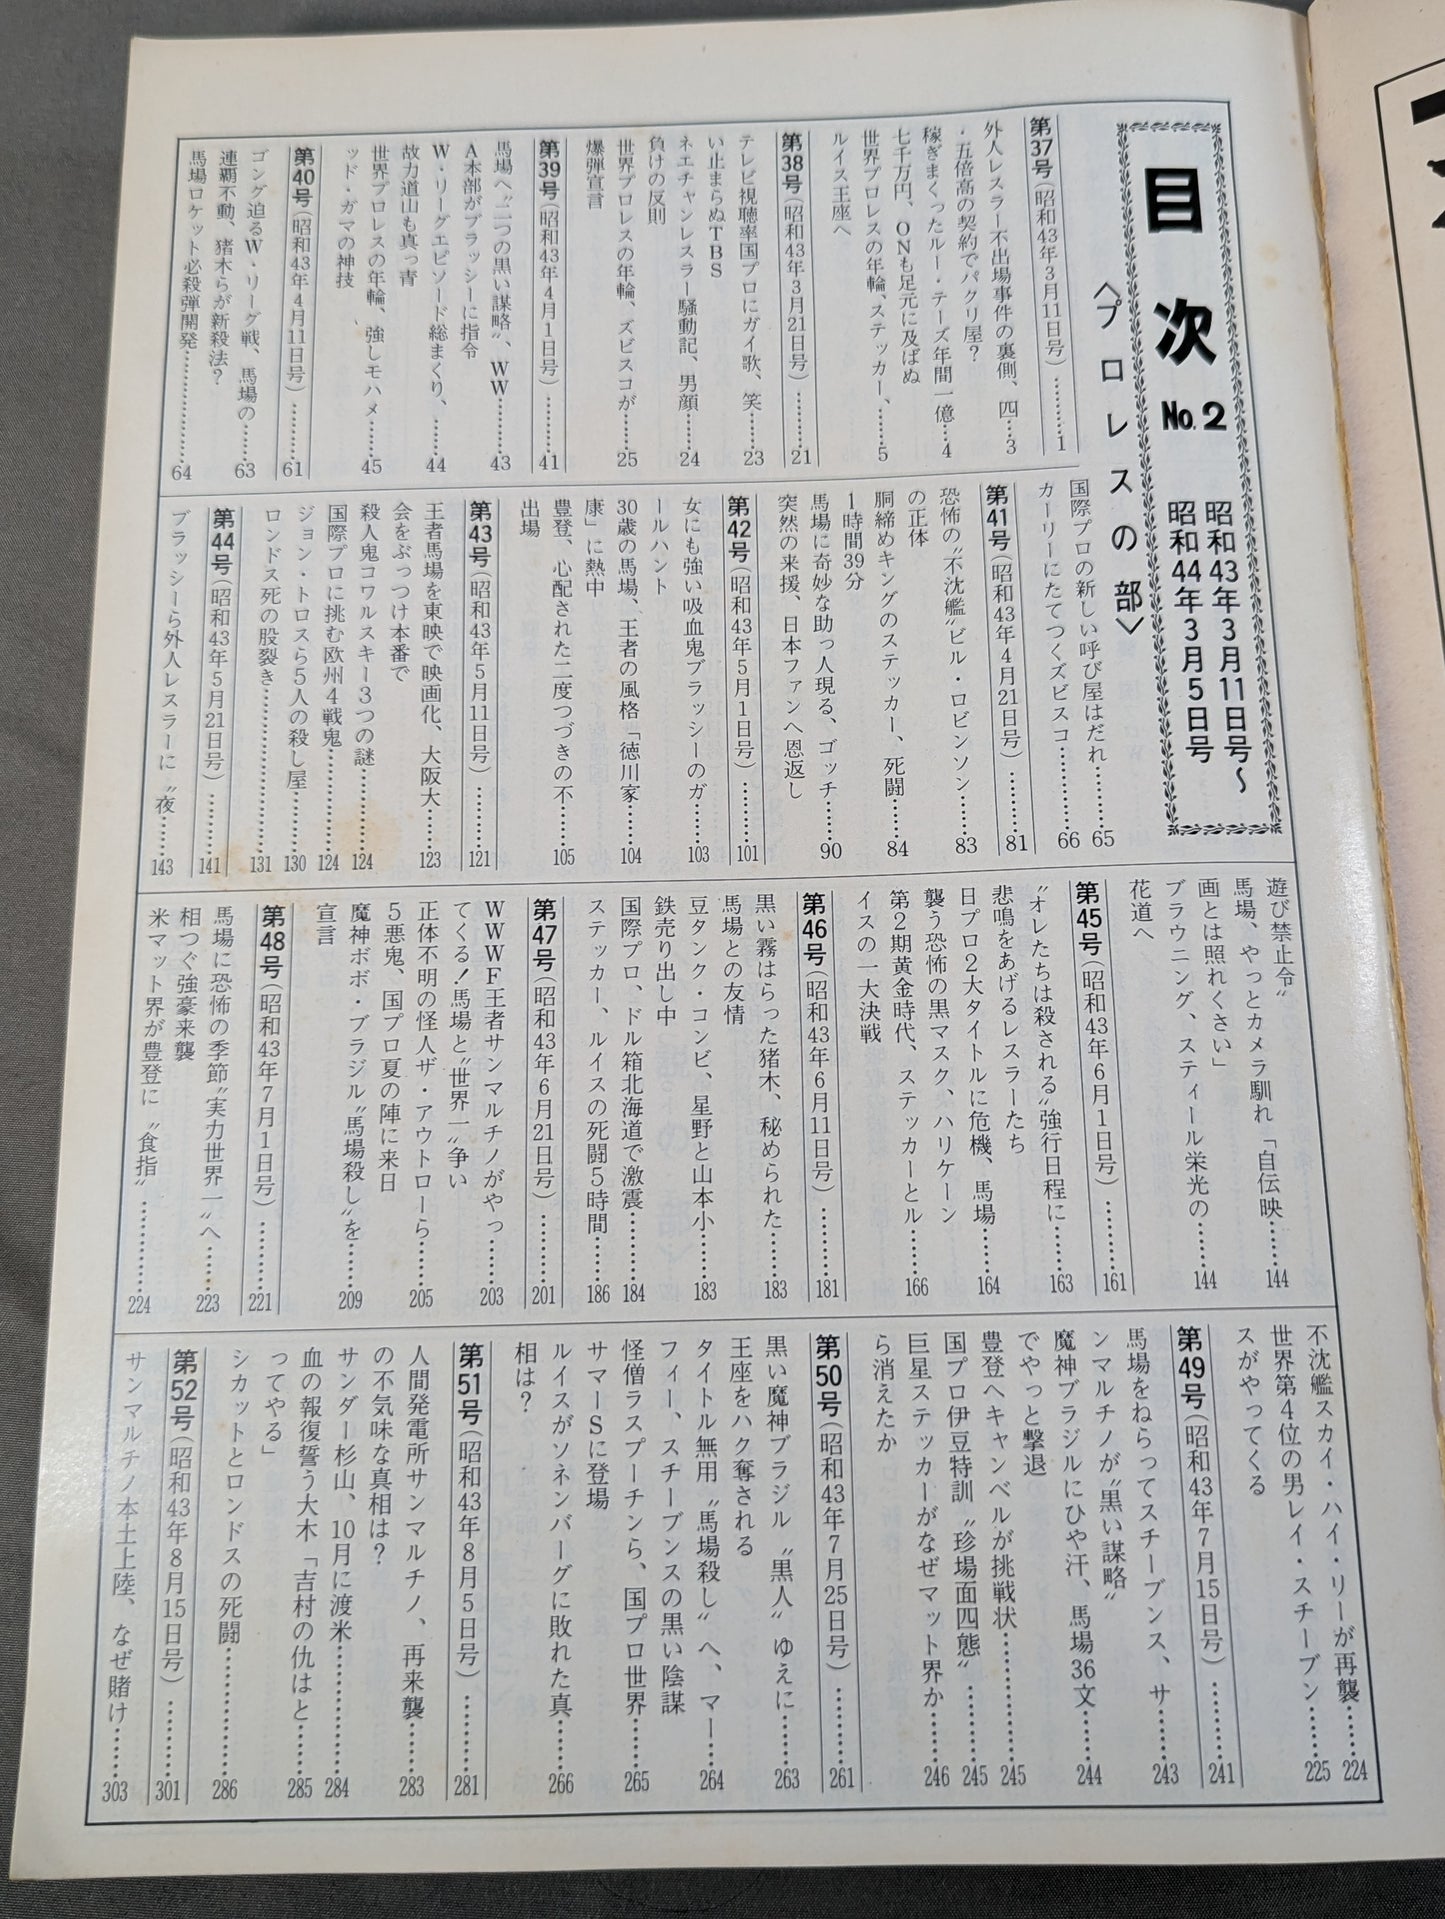 目次 No.2
昭和43年3月11日号〜
昭和44年3月5日号
〈プロレスの部〉
第37号(昭和43年3月11日号)………1
外人レスラー不出場事件の裏側、四…3
・五倍高の契約でパクリ屋?
稼ぎまくったルー・テーズ年間一億…4
七千万円、ONも足元に及ばぬ
世界プロレスの年輪、ステッカー、……5
ルイス王座へ
第38号(昭和43年3月21日号)………21
テレビ視聴率国プロにガイ歌、笑……23
い止まらぬTBS
ネエチャンレスラー騒動記、男顔……24
負けの反則
世界プロレスの年輪、ズビスコが……25
爆弾宣言
第39号(昭和43年4月1日号)………41
馬場へ“二つの黒い謀略”、WW……43
A本部がブラッシーに指令
W・リーグエピソード総まくり、……44
故力道山も真っ青
世界プロレスの年輪、強しモハメ……45
ッド・ガマの神技
第40号(昭和43年4月11日号)………61
ゴング迫るW・リーグ戦、馬場の……63
連覇不動、猪木らが新殺法?
馬場ロケット必殺弾開発……………64
国際プロの新しい呼び屋はだれ………65
カーリーにたてつくズビスコ…………66
第41号(昭和43年4月21日号)………81
恐怖の“不沈艦”ビル・ロビンソン……83
の正体
胴締めキングのステッカー、死闘……84
1時間39分
馬場に奇妙な助っ人現る、ゴッチ……90
突然の来援、日本ファンへ恩返し
第42号(昭和43年5月1日号)………101
女にも強い吸血鬼ブラッシーのガ……103
ールハント
30歳の馬場、王者の風格「徳川家……104
康」に熱中
豊登、心配された二度つづきの不……105
出場
第43号(昭和43年5月11日号)………121
王者馬場を東映で映画化、大阪大……123
会をぶっつけ本番で
殺人鬼コワルスキー3つの謎…………124
国際プロに挑む欧州4戦鬼……………124
ジョン・トロスら5人の殺し屋………130
ロンドス死の股裂き……………………131
第44号(昭和43年5月21日号)………141
ブラッシーら外人レスラーに“夜……143
遊び禁止令”
馬場、やっとカメラ馴れ「自伝映……144
画とは照れくさい」
ブラウニング、スティール栄光の……144
花道へ
第45号(昭和43年6月1日号)………161
“オレたちは殺される”強行日程に……163
悲鳴をあげるレスラーたち
日プロ2大タイトルに危機、馬場……164
襲う恐怖の黒マスク、ハリケーン
第2期黄金時代、ステッカーとル……166
イスの一大決戦
第46号(昭和43年6月11日号)………181
黒い霧はらった猪木、秘められた……183
馬場との友情
豆タンク・コンビ、星野と山本小……183
鉄売り出し中
国際プロ、ドル箱北海道で激震………184
ステッカー、ルイスの死闘5時間……186
第47号(昭和43年6月21日号)………201
WWWF王者サンマルチノがやっ……203
てくる!馬場と“世界一”争い
正体不明の怪人ザ・アウトローら……205
5悪鬼、国プロ夏の陣に来日
魔神ボボ・ブラジル“馬場殺し”を……209
宣言
第48号(昭和43年7月1日号)………221
馬場に恐怖の季節“実力世界一”へ……223
相つぐ強豪来襲
米マット界が豊登に“食指”…………224
不沈艦スカイ・ハイ・リーが再襲……224
世界第4位の男レイ・スチーブン……225
スがやってくる
第49号(昭和43年7月15日号)………241
馬場をねらってスチーブンス、サ……243
ンマルチノが“黒い謀略”
魔神ブラジルにひや汗、馬場36文……244
でやっと撃退
豊登へキャンベルが挑戦状……………245
国プロ伊豆特訓“珍場面四態”………245
巨星ステッカーがなぜマット界か……246
ら消えたか
第50号(昭和43年7月25日号)………261
黒い魔神ブラジル“黒人”ゆえに……263
王座をハク奪される
タイトル無用“馬場殺し”へ、マー……264
フィー、スチーブンスの黒い陰謀
怪僧ラスプーチンら、国プロ世界……265
サマーSに登場
ルイスがソネンバーグに敗れた真……266
相は?
第51号(昭和43年8月5日号)………281
人間発電所サンマルチノ、再来襲……283
の不気味な真相は?
サンダー杉山、10月に渡米……………284
血の報復誓う大木「吉村の仇はと……285
ってやる」
シカットとロンドスの死闘……………286
第52号(昭和43年8月15日号)………301
サンマルチノ本土上陸、なぜ賭け……303